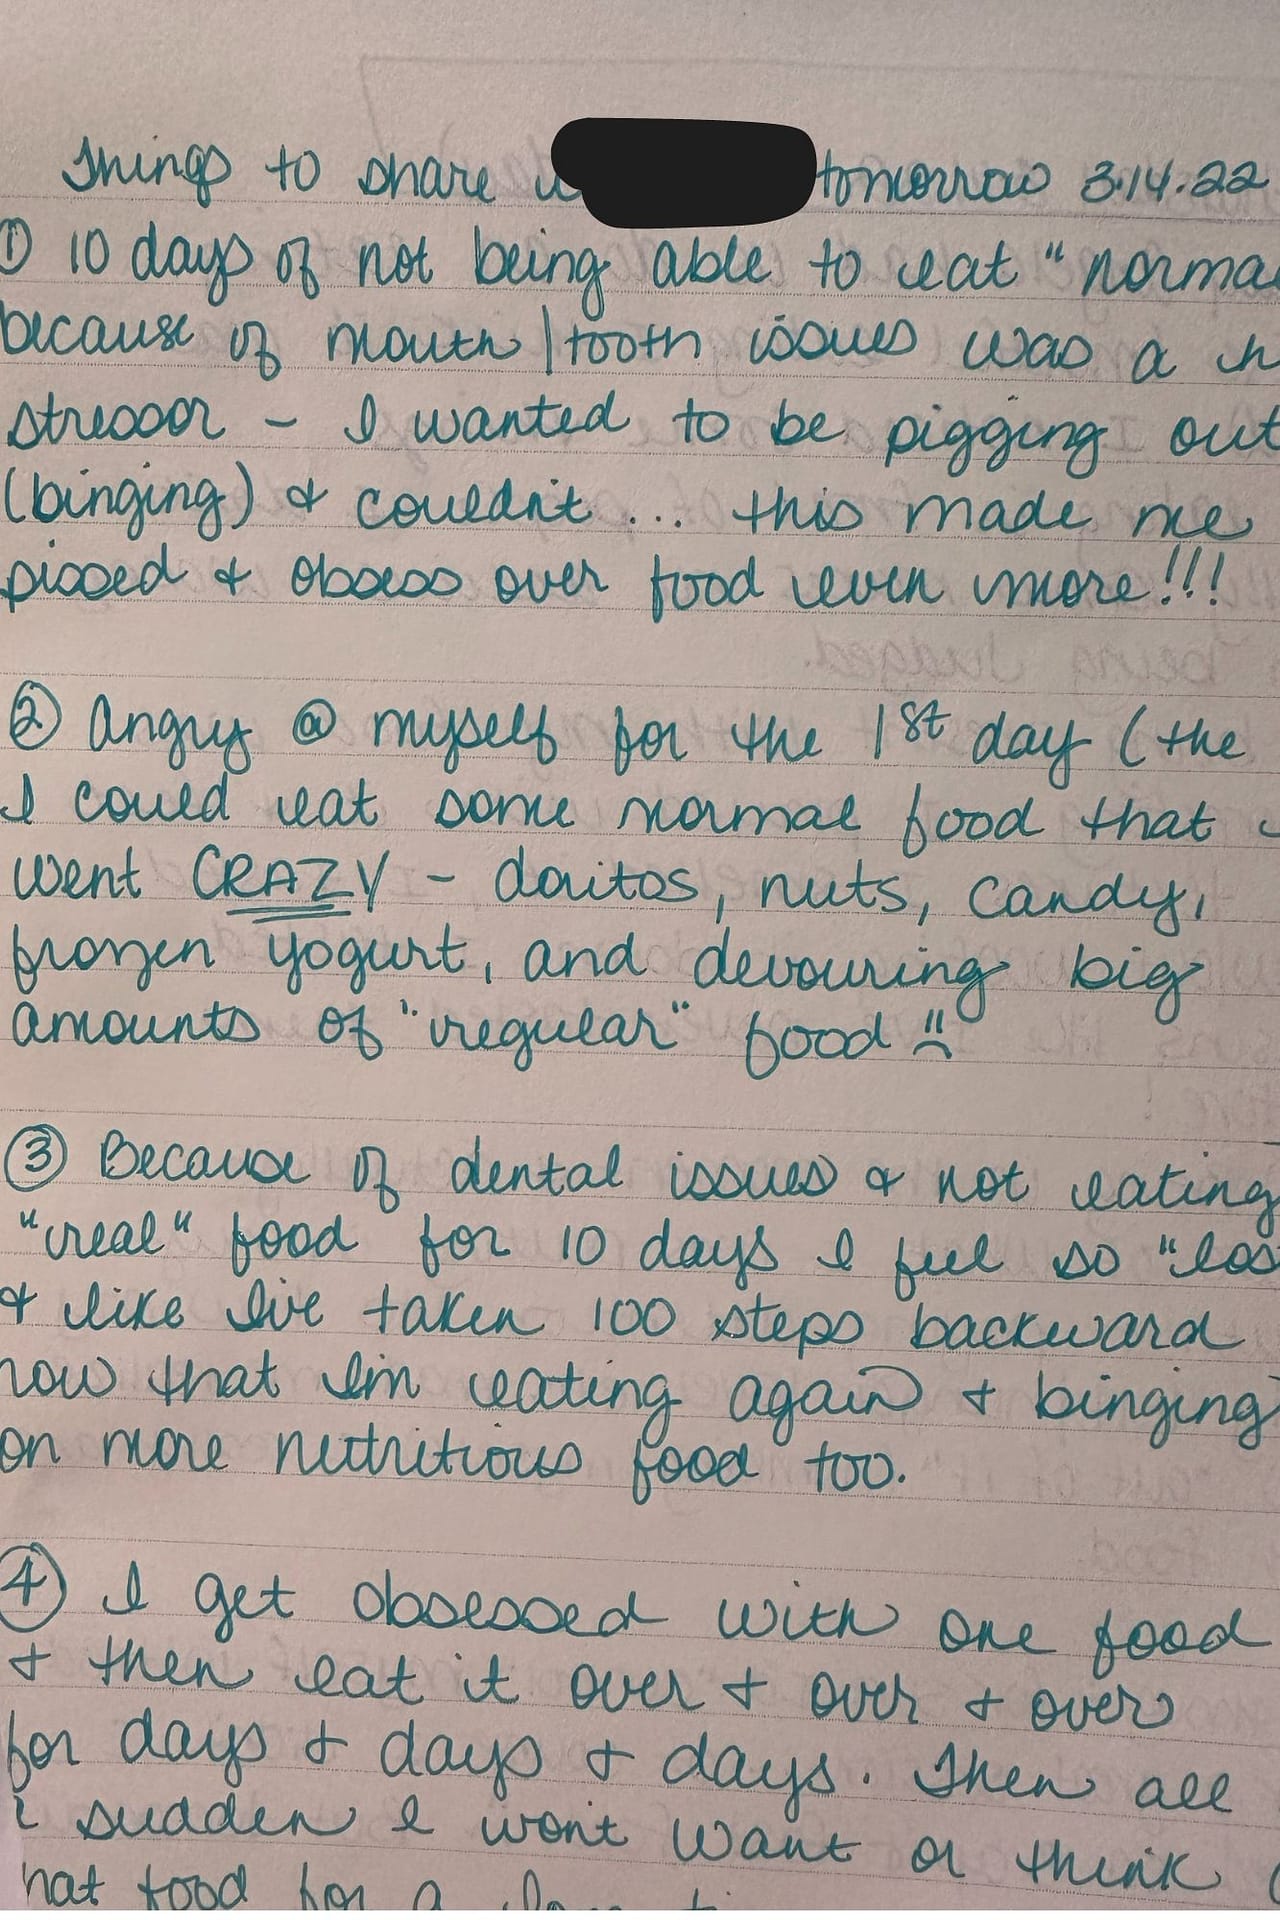 Things to share tomorrow 3.14.22
① 10 days of not being able to eat "norma
because of mouth/tooth issues was a
stressor - I wanted to be pigging out
(binging) & couldn't ... this made me
pissed & obsess over food even more!!!
② Angry @ myself for the 1st day (the
I could eat some normal food that
went CRAZY - doritos, nuts, candy,
frozen yogurt, and devouring big
amounts of "regular" food
③ Because of dental issues & not eating
"real" food for 10 days I feel so "los
& like I've taken 100 steps backward
now that I'm eating again & binging
on more nutritious food too.
④ I get obsessed with one food
& then eat it over & over & over
for days & days & days. Then all
sudden I won't want or think
hat food for a